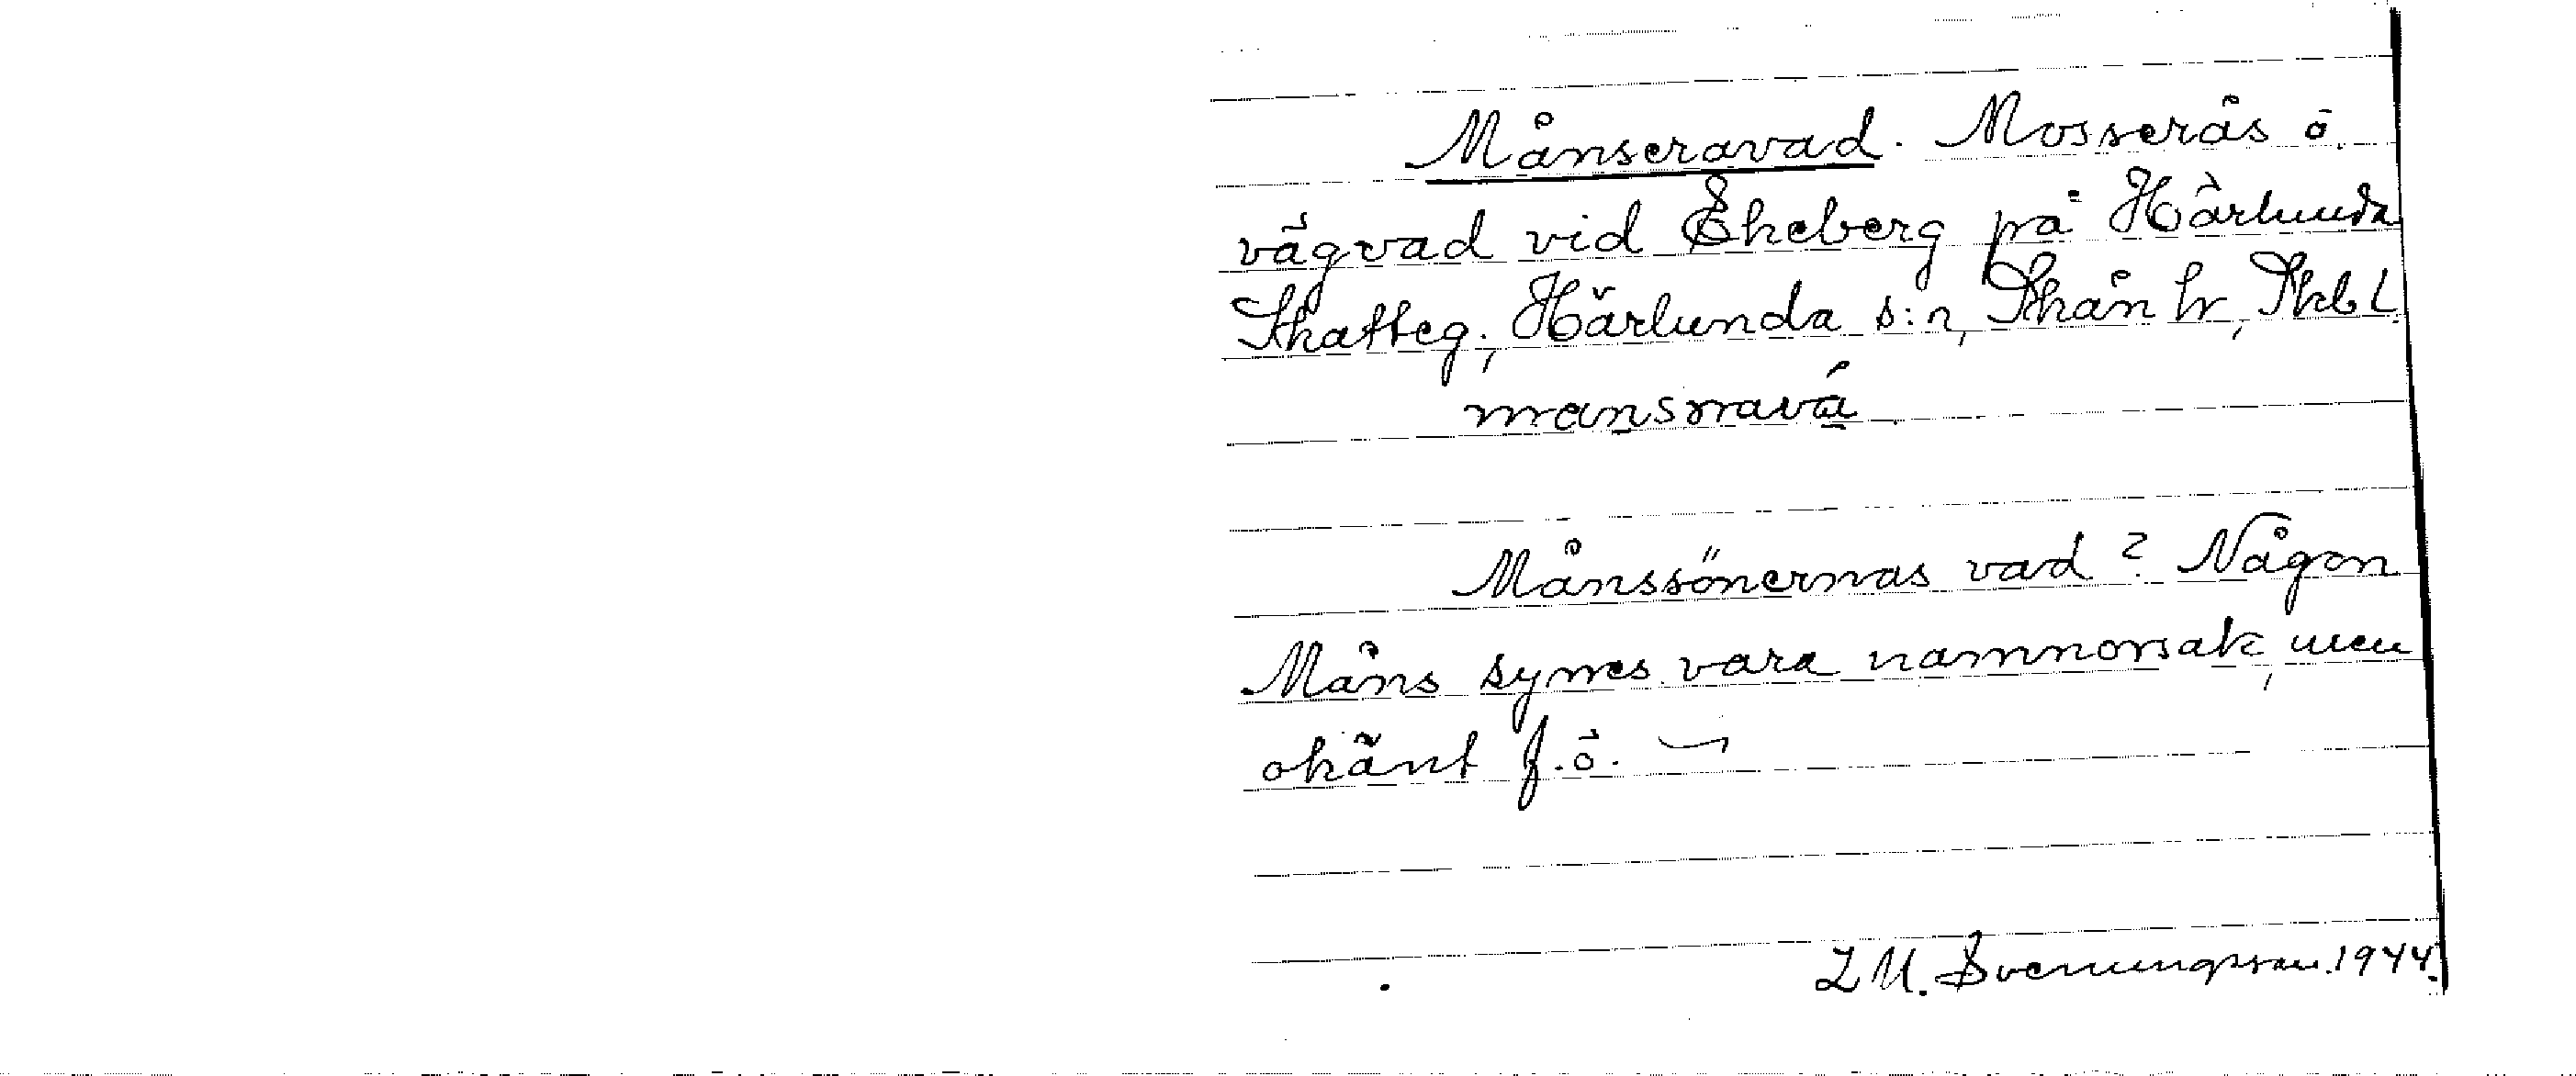 Månseravad. Mosserås ö.
vägvad vid Ekeberg på Härlunda
Skatteg., Härlunda s:n, Skån hr, Skbl.
mansravá
Månssönernas vad? Någon
Måns synes vara namnorsak, men
okänt f.ö.
L M. Svenungsson. 1944.